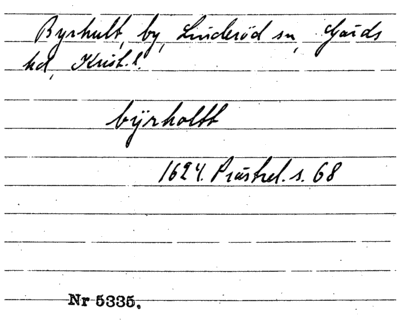 Byrhult, by, Linderöd sn, Gärds
hd, Krist. l.
bÿrholtt
1624. Prästrel. s. 68
Nr 5335.